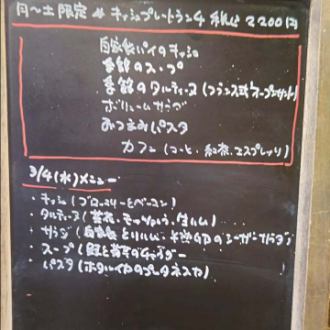 月〜土限定 キッシュプレートランチ 税込2200円
自家製パイのキッシュ
季節のスープ
季節のタルティーヌ(フランス式オープンサンド)
ボリュームサラダ
おつまみパスタ
カフェ(コーヒー、紅茶、エスプレッソ)
3/4(水)メニュー
・キッシュ(ブロッコリーとベーコン)
・タルティーヌ(菜花、モッツァレラ、生ハム)
・サラダ(自家製とりハム、のシーザーサラダ)
・スープ(鮭と のチャウダー
・パスタ(ホタルイカのプッタネスカ)